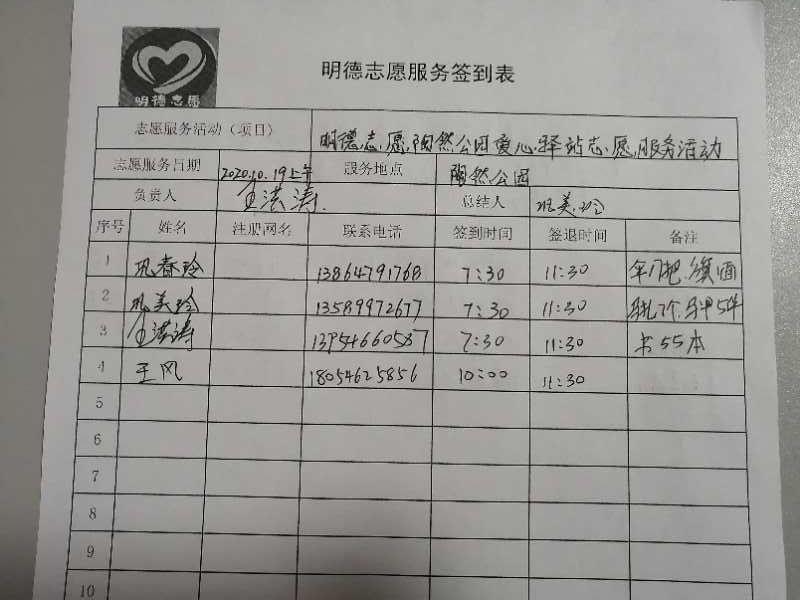 明德志愿
明德志愿服务签到表
志愿服务活动（项目） 明德志愿陶然公园爱心驿站志愿服务活动
志愿服务日期 2020.10.19上午 服务地点 陶然公园
负责人 王洪涛 总结人 巩美玲
序号 姓名 注册网名 联系电话 签到时间 签退时间 备注
1 巩春玲 13864791768 7:30 11:30
2 巩美玲 13589972677 7:30 11:30
3 王洪涛 13954660587 7:30 11:30 书55本
4 王风 18054625856 10:00 11:30
5
6
7
8
9
10